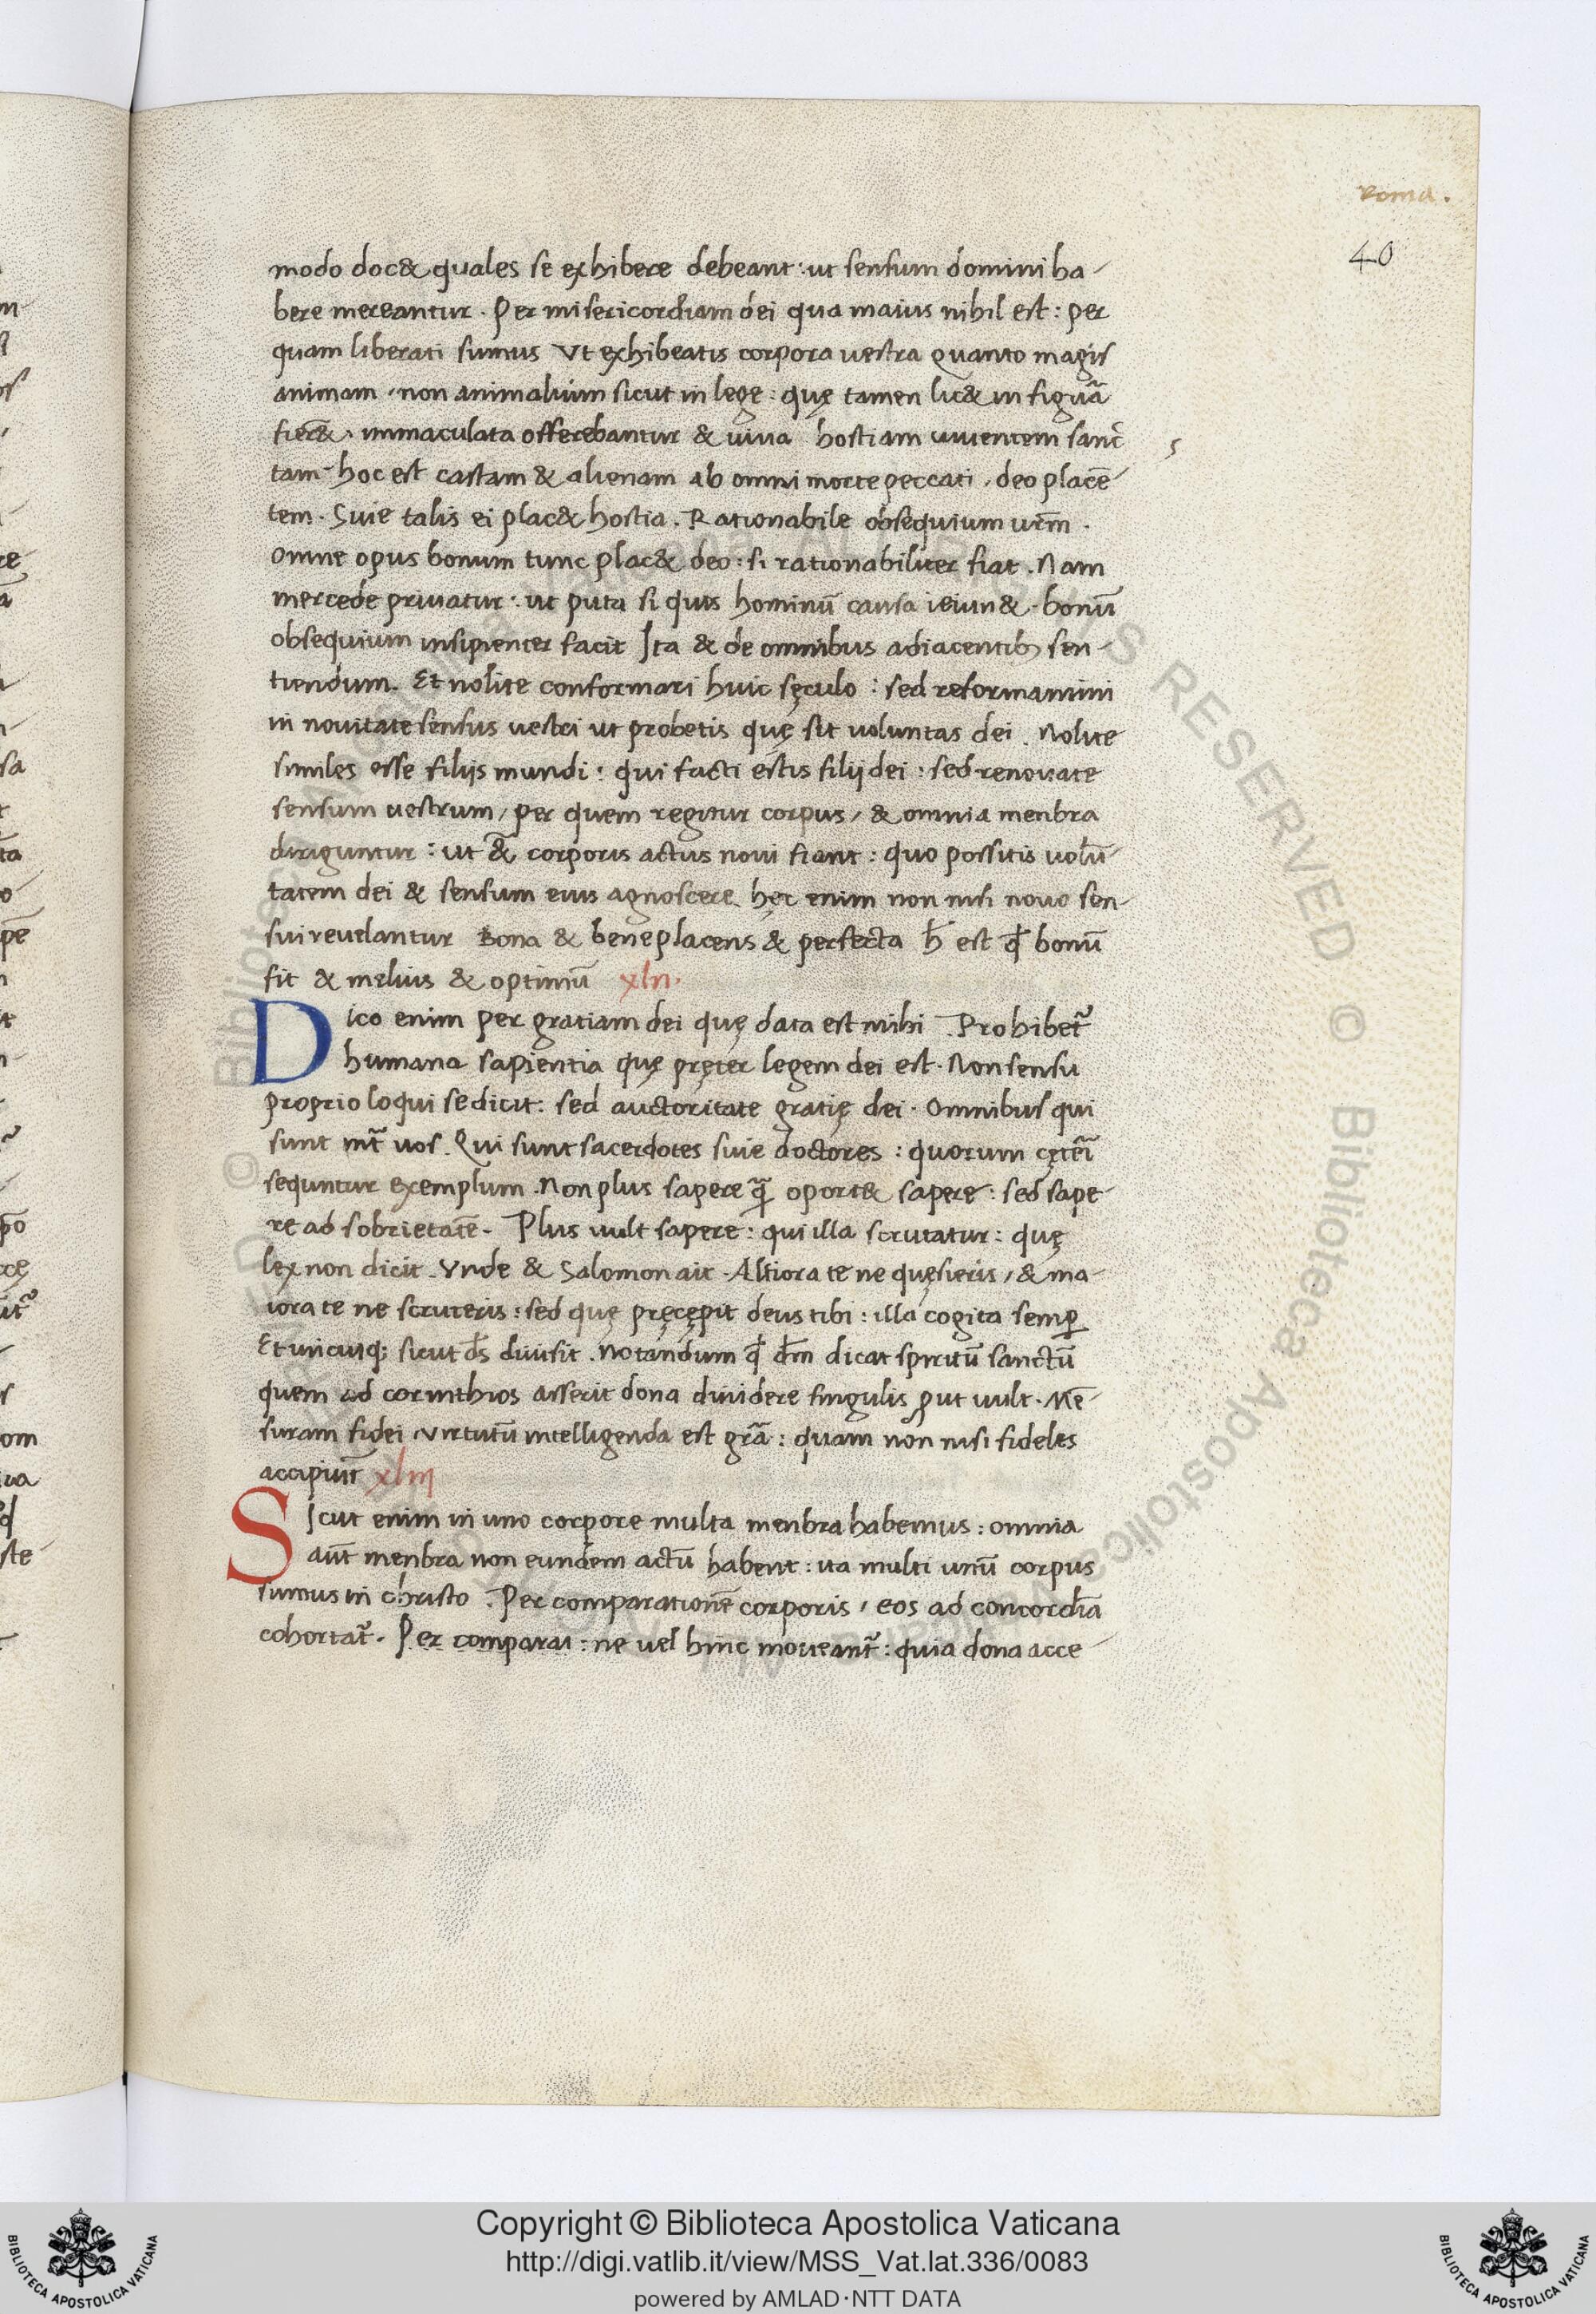 roma.
40
modo doc& quales se exhibere debeant: ut sensum domini ha-
bere mereantur. Per misericordiam dei qua maius nihil est: per
quam liberati sumus Vt exhibeatis corpora uestra quanto magis
animam, non animalium sicut in lege: quę tamen lic& in figurā
fier&, immaculata offerebantur & uiua hostiam uiuentem sanc
tam- hoc est castam & alienam ab omni morte peccati, deo placē-
tem. Suie talis ei plac& hostia. Rationabile obsequium ur̄m.
omne opus bonum tunc plac& deo: si rationabiliter fiat. Nam
mercede priuatur: ut puta si quis hominū causa ieiun&. bonū
obsequium insipienter facit Ita & de omnibus adiacentib; sen-
tiendum. Et nolite conformari huic sęculo: sed reformamini
in nouitate sensus uestri ut probetis quę sit uoluntas dei. Nolite
similes esse filijs mundi: qui facti estis filij dei: sed renouate
sensum uestrum, per quem regitur corpus, & omnia menbra
diriguntur: ut &̄ corporis actus noui fiant: quo possitis uolū-
tatem dei & sensum eius agnoscere hęc enim non nisi nouo sen-
sui reuelantur Bona & beneplacens & perfecta h̄ est q̄ bonū
sit & melius & optimū xlii.
Dico enim per gratiam dei quę data est mihi. Prohibet᷑
humana sapientia quę pręter legem dei est. Non sensu
proprio loqui se dicit: sed auctoritate gratię dei. Omnibus qui
sunt int̄ uos. Qui sunt sacerdotes siue doctores: quorum cętēi
sequntur exemplum. Non plus sapere q̄ oport& sapere: sed sape-
re ad sobrietatē. Plus uult sapere: qui illa scrutatur: quę
lex non dicit. Vnde & Salomon ait. Altiora te ne quęsieris, & ma-
iora te ne scruteris: sed quę pręcępit deus tibi: illa cogita semꝑ
Et unicuiq; sicut d̄s diuisit. Notandum q̄ d̄m dicat spiritū sanctū
quem ad corinthios asserit dona diuidere singulis ꝓut uult. Mē-
suram fidei, Virtutū intelligenda est gr̄a: quam non nisi fideles
accipiūt xliii
SIcut enim in uno corpore multa menbra habemus: omnia
aūt menbra non eundem actū habent: ita multi unū corpus
sumus in christo. Per comparationē corporis, eos ad concordiā
cohortat᷑. Per comparat: ne uel hinc moueant᷑: quia dona acce-
Copyright © Biblioteca Apostolica Vaticana
http://digi.vatlib.it/view/MSS_Vat.lat.336/0083
powered by AMLAD·NTT DATA
BIBLIOTECA APOSTOLICA VATICANA
BIBLIOTECA APOSTOLICA VATICANA